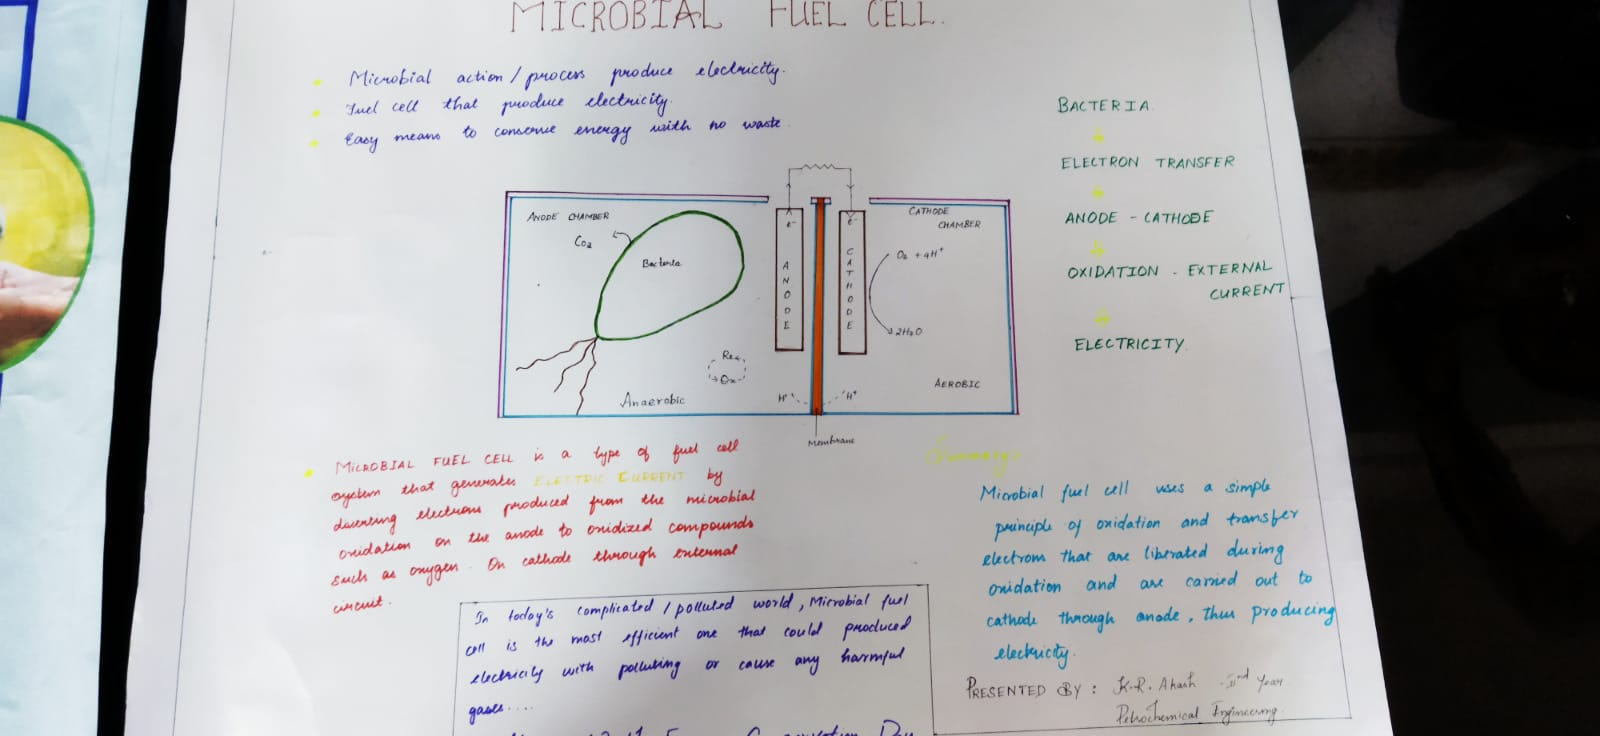 MICROBIAL FUEL CELL.
Microbial action / process produce electricity.
Fuel cell that produce electricity.
Easy means to conserve energy with no waste.
ANODE CHAMBER
CO2
Bacteria
Anaerobic
Ox
e-
ANODE
H+
Membrane
e-
CATHODE
H+
CATHODE
CHAMBER
O2 + 4H+
2H2O
AEROBIC
BACTERIA
ELECTRON TRANSFER
ANODE - CATHODE
OXIDATION - EXTERNAL
CURRENT
ELECTRICITY.
MICROBIAL FUEL CELL is a type of fuel cell
system that generates ELECTRIC CURRENT by
diverting electrons produced from the microbial
oxidation on the anode to oxidized compounds
such as oxygen. On cathode through external
circuit.
In today's complicated / polluted world, Microbial fuel
cell is the most efficient one that could produced
electricity with polluting or cause any harmful
gases....
Summary:
Microbial fuel cell uses a simple
principle of oxidation and transfer
electrom that are liberated during
oxidation and are carried out to
cathode through anode, Thus producing
electricity.
PRESENTED BY : K.R. Akash - IInd Year
Petrochemical Engineering.